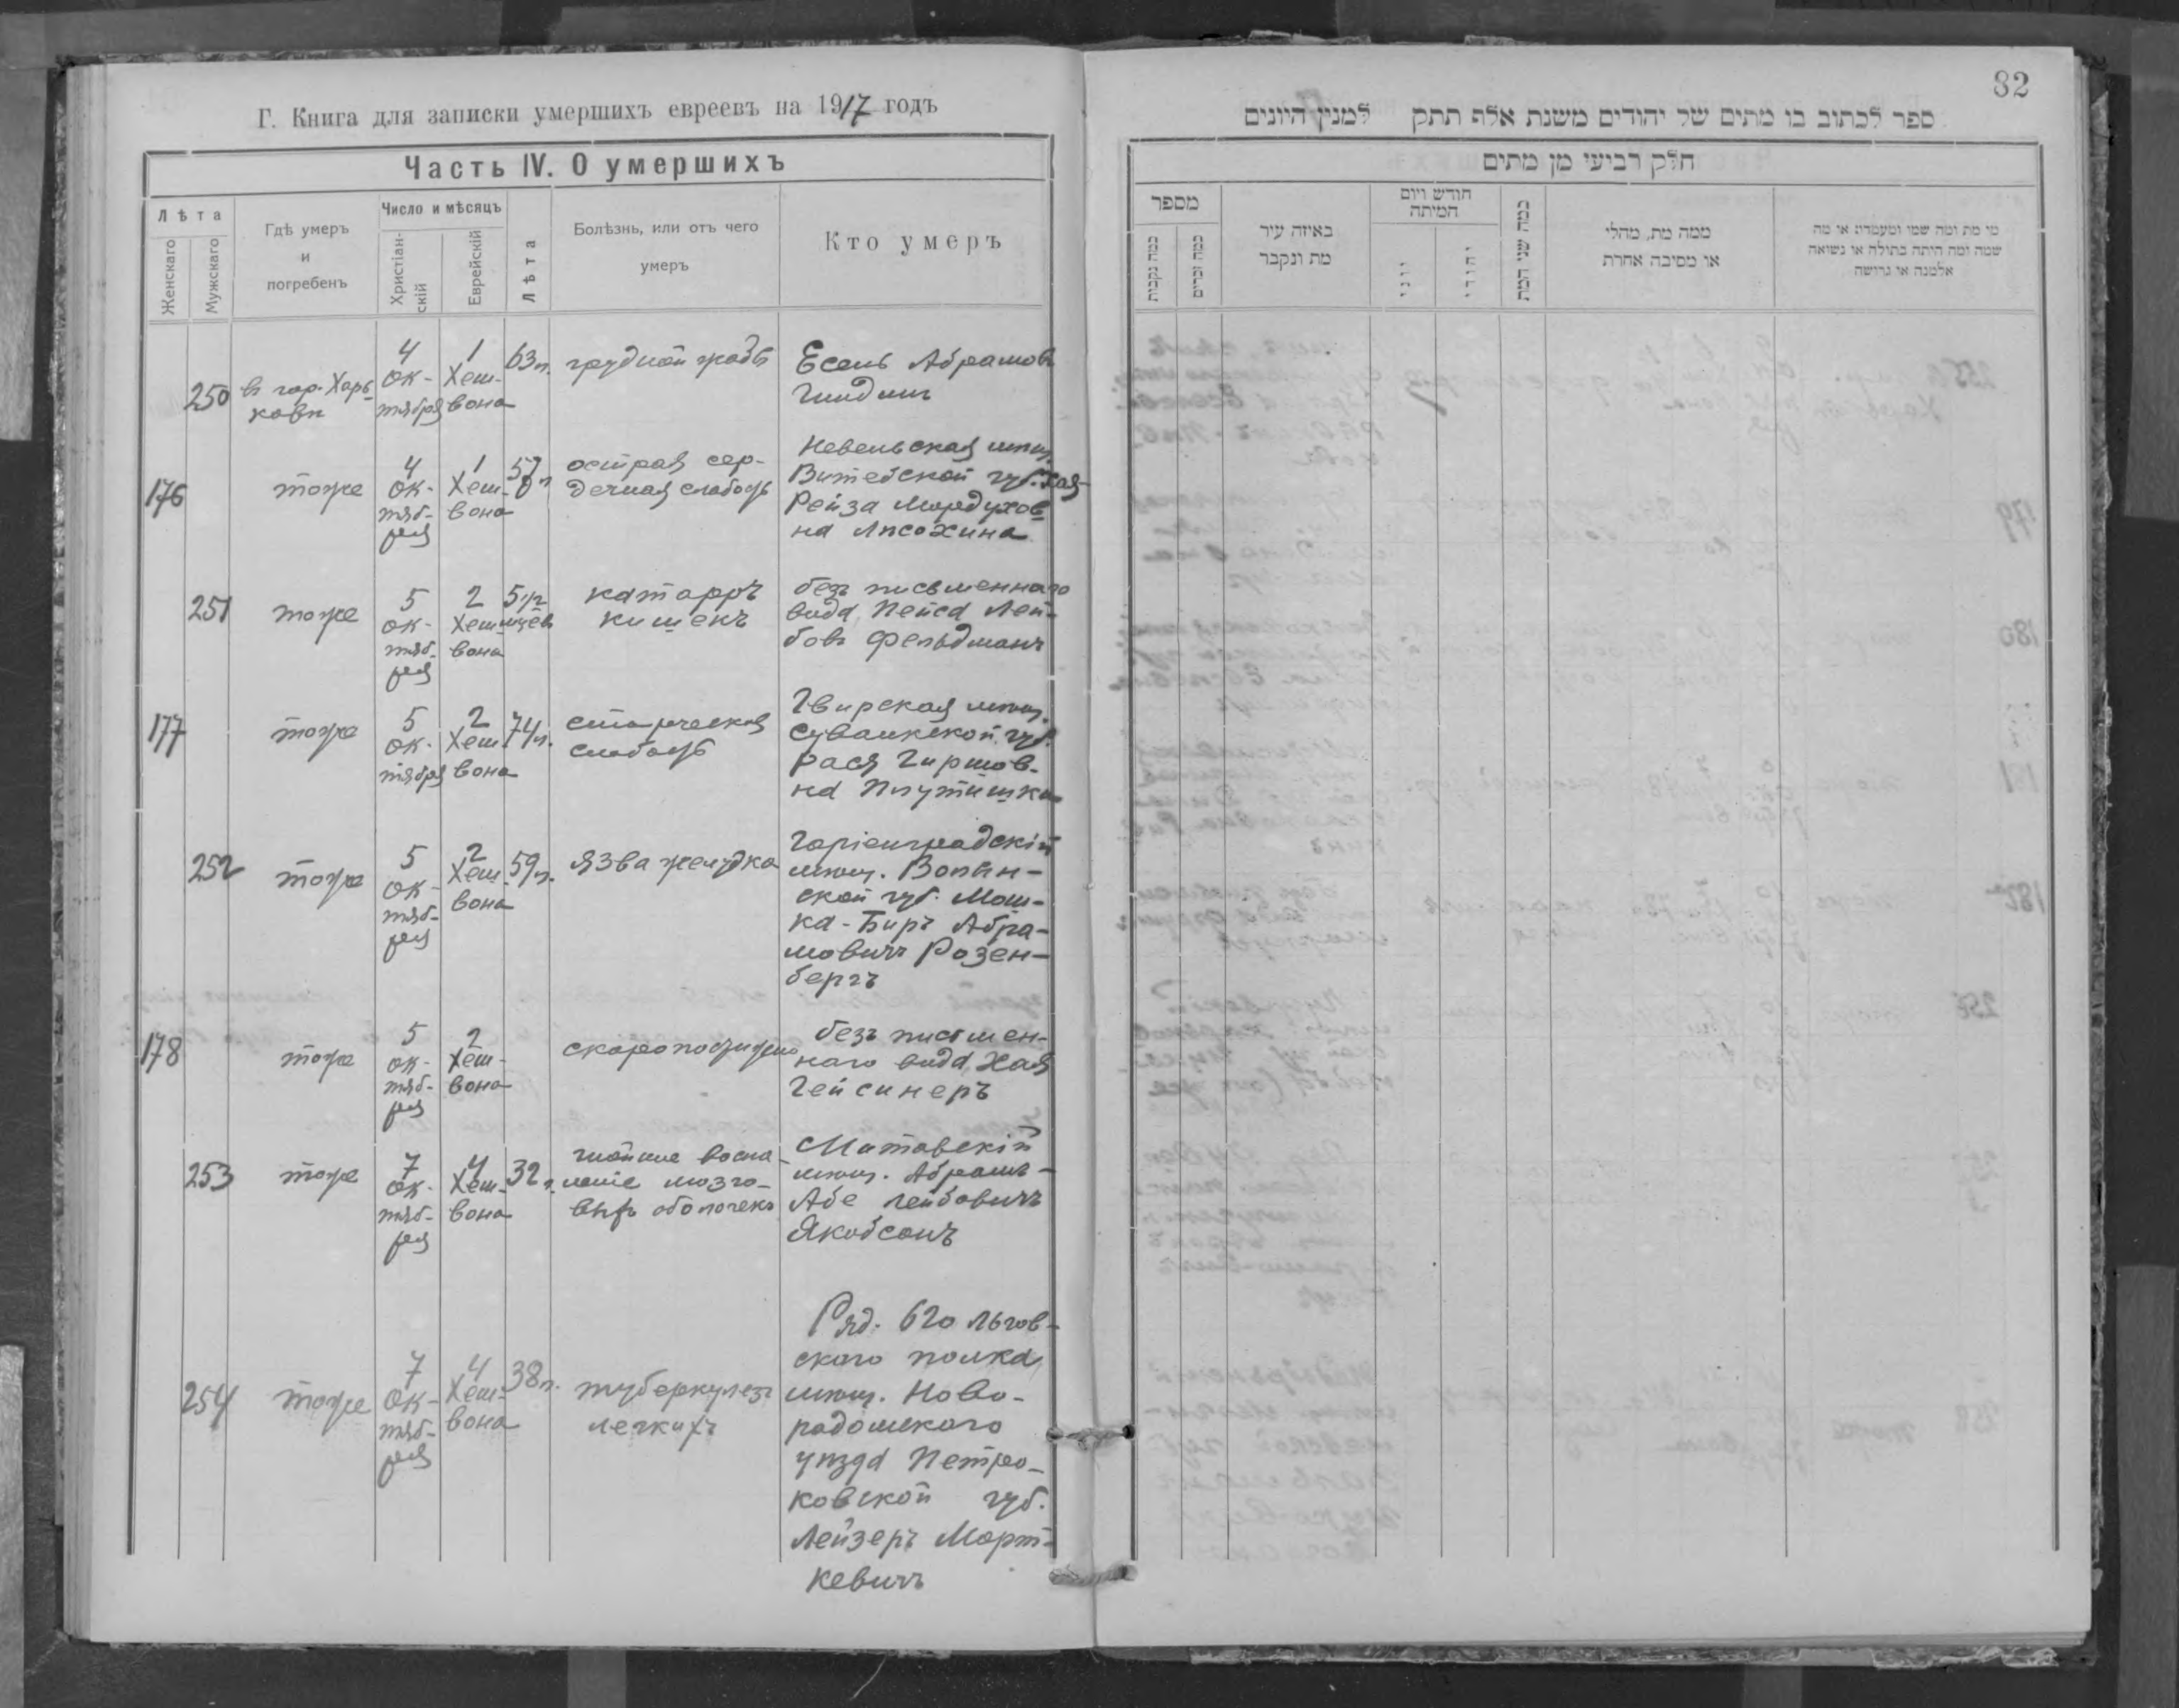 82
Г. Книга для записки умершихъ евреевъ на 1917 годъ
Часть IV. О умершихъ
Лѣта
Женскаго
Мужскаго
Гдѣ умеръ
и
погребенъ
Число и мѣсяцъ
Христіан-
скій
Еврейскій
Лѣта
Болѣзнь, или отъ чего
умеръ
Кто умеръ
250
въ гор. Харь-
ковѣ
4
ок-
тября
1
Хеш-
вона
63 л.
грудной жабы
Есель Абрамовъ
Гиндинъ
176
тоже
4
ок-
тяб-
ря
1
Хеш-
вона
57 л
острая сер-
дечная слабость
Невельская мѣщ.
Витебской губ. Хая-
Рейза Мордухов-
на Лисохина
251
тоже
5
ок-
тяб-
ря
2
Хеш
вона
5 1/2
мцев
катарръ
кишекъ
безъ письменнаго
вида, Пейса Лей-
бовъ Фельдманъ
177
тоже
5
ок-
тября
2
Хеш
вона
74 л.
старческая
слабость
мѣщ.
Сувалкской губ.
Рася Гиршов-
на
252
тоже
5
ок-
тяб-
ря
2
Хеш-
вона
59 л.
язва желудка
мѣщ. Волын-
ской губ. Мош-
ка-Беръ Абра-
мовичъ Розен-
бергъ
178
тоже
5
ок-
тяб-
ря
2
Хеш-
вона
скоропостижно
безъ письмен-
наго вида, Хая
Гейсинеръ
253
тоже
7
ок-
тяб-
ря
4
Хеш-
вона
32 л.
гнойное воспа-
леніе мозго-
выхъ оболочекъ
Митавскій
мѣщ. Абрамъ-
Абе Лейбовичъ
Якобсонъ
254
тоже
7
ок-
тяб-
ря
4
Хеш-
вона
38 л.
туберкулезъ
легкихъ
Ряд. 620 Льгов-
скаго полка,
мѣщ. Ново-
радомскаго
уѣзда Петро-
ковской губ.
Лейзеръ Морт-
кевичъ
ספר לכתוב בו מתים של יהודים משנת אלף תתק למנין היונים
חלק רביעי מן מתים
מספר
כמה נקבות
כמה זכרים
באיזה עיר
מת ונקבר
חודש ויום
המיתה
יוני
יהודי
כמה שני המת
ממה מת, מחלי
או מסיבה אחרת
מי מת ומה שמו ומעמדו או מה
שמה ומה היתה בתולה או נשואה
אלמנה או גרושה